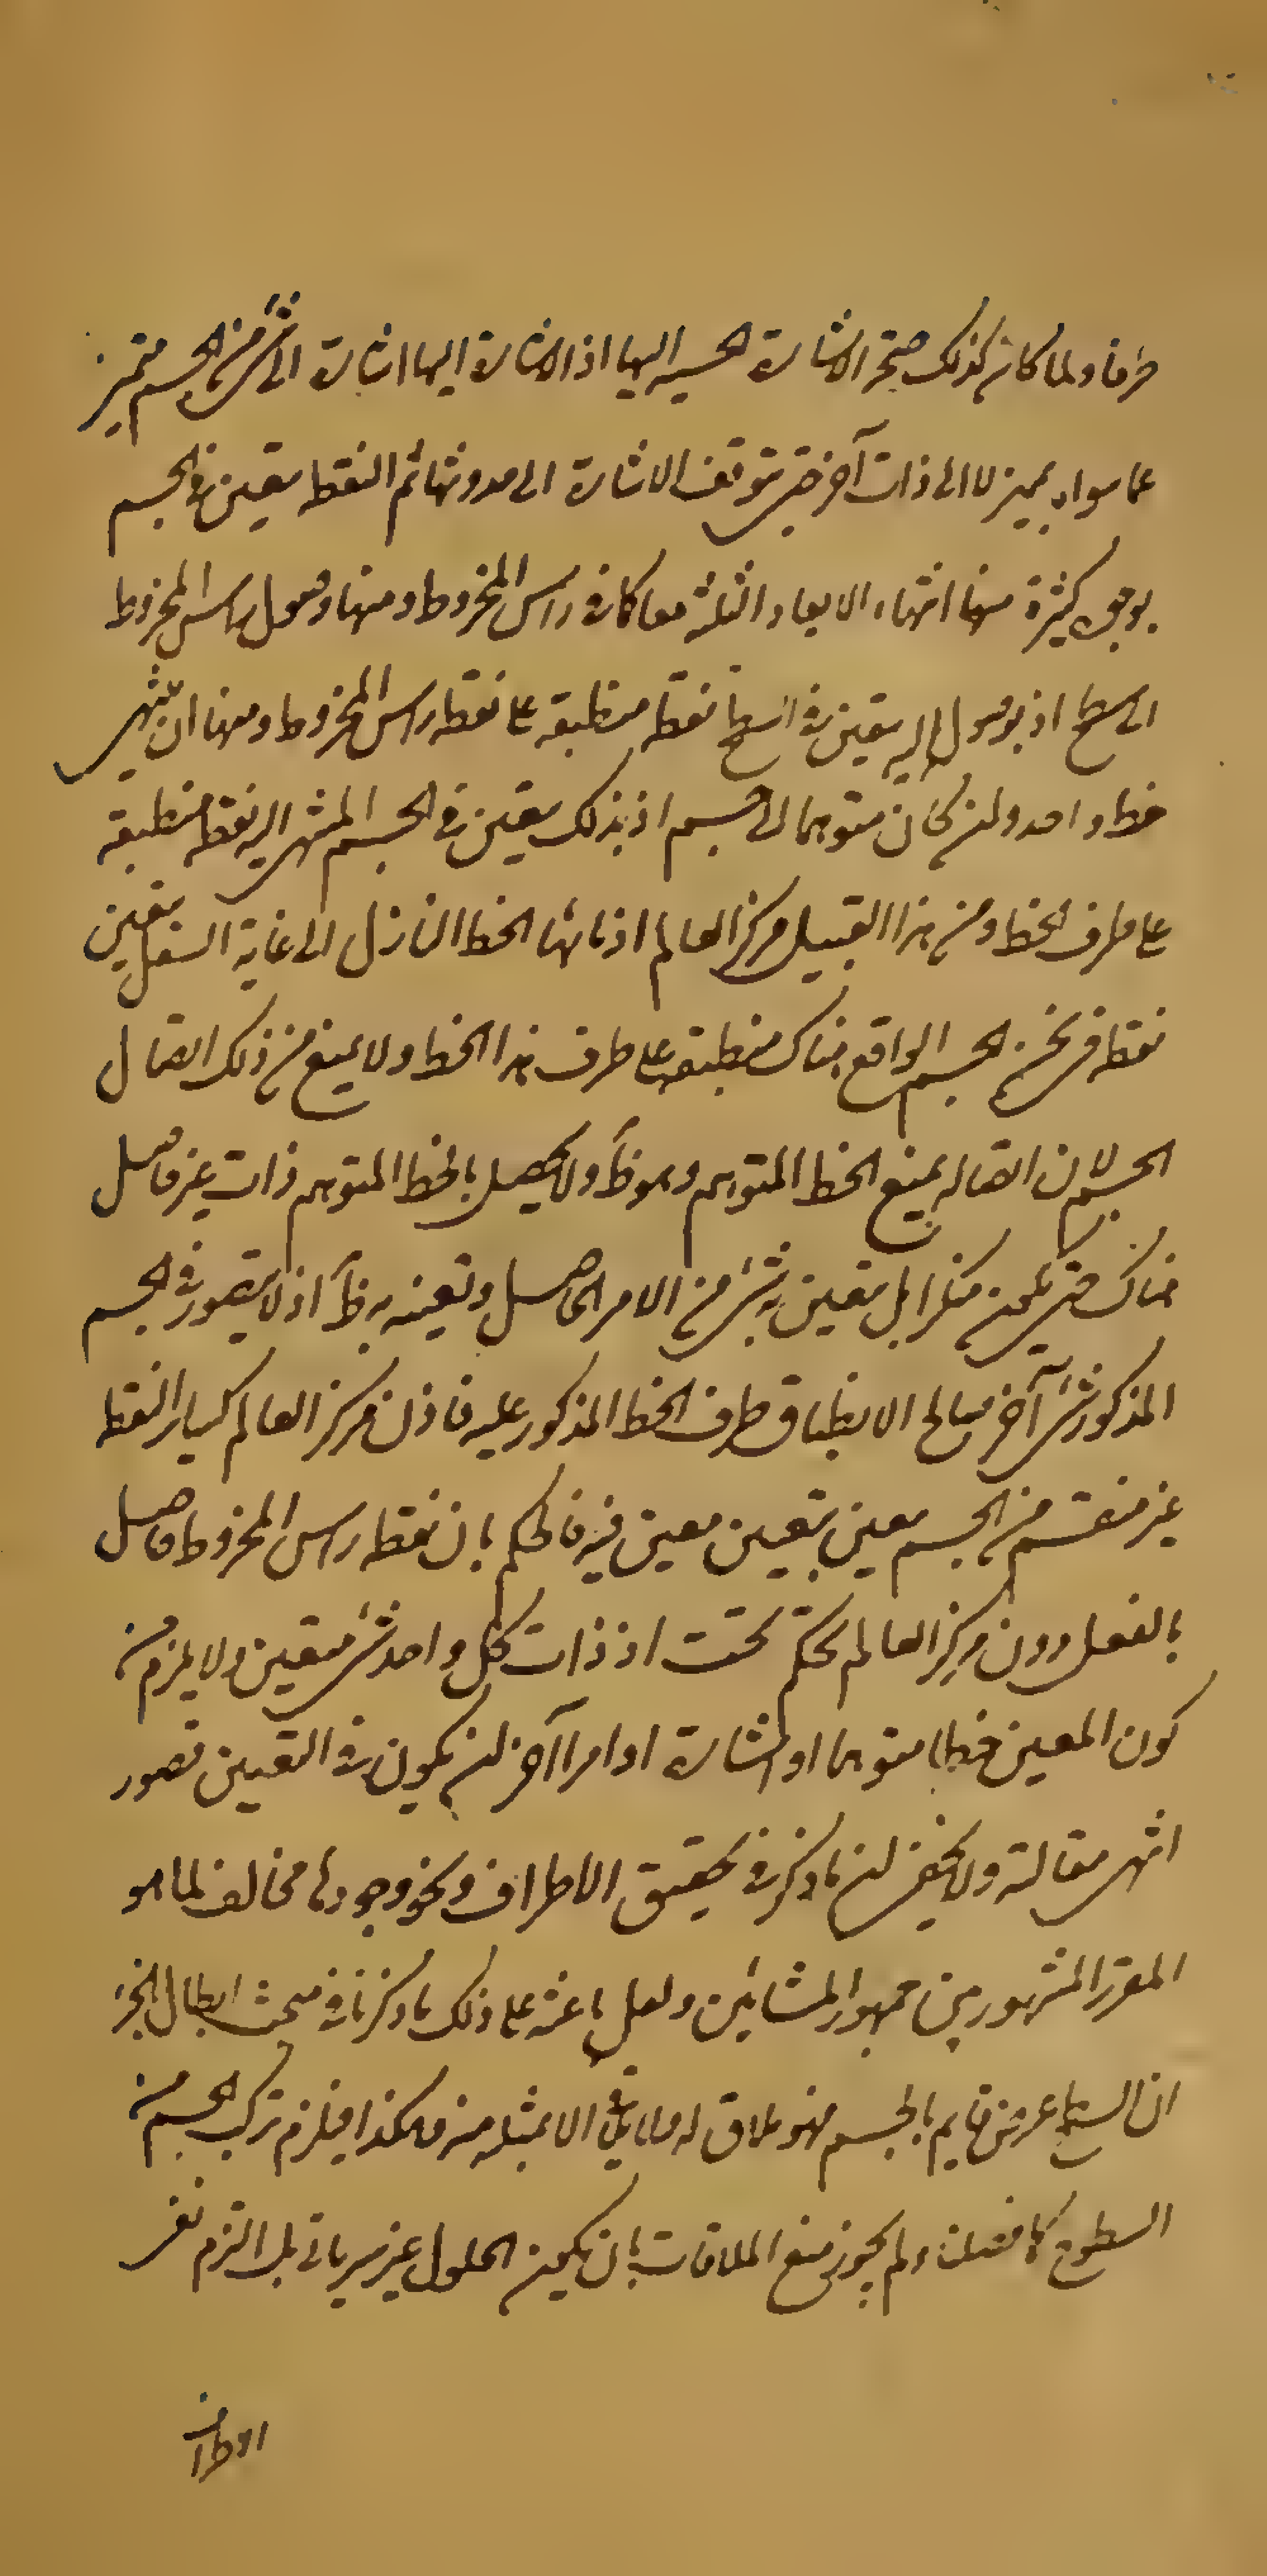 طرفا ولما كان كذلك صحة الاشارة الحسية اليها اذ الاشارة اليها اشارة الى شئ من الجسم متميز
عما سواه بمميز لا الى ذات آخر حتى يتوقف الاشارة الى حدوثها ثم النقطة يتعين في الجسم
بوجوه كثيرة منها انتهاء الابعاد الثلثة معا كما في راس المخروط ومنها وصول راس المخروط
الى سطح اذ بوصوله اليه يتعين في السطح نقطة منطبقة على نقطة راس المخروط ومنها ان ينتهى
خط واحد ولن كان متوهما الى جسم اذ بذلك يتعين في الجسم المنتهى اليه نقطة منطبقة
على طرف الخط ومن هذا القبيل مركز العالم اذ بانتهاء الخط النازل الى غاية السفل يتعين
نقطة في ثخن الجسم الواقع هناك منطبقة على طرف هذا الخط ولا يمنع من ذلك اتصال
الجسم لان اتصاله يمنع الخط المتوهم وهو ظ ولا يحصل بالخط المتوهم ذات غير حاصل
هناك حتى يكون منكرا بل يتعين به شئ من الامر الحاصل وتعينه به ظ اذ لا يتصور في الجسم
المذكور شئ آخر صالح الانطباق طرف الخط المذكور عليه فاذن مركز العالم كساير النقط
غير منقسم من الجسم معين بتعين معين فيه فالحكم بان نقطة راس المخروط حاصل
بالفعل دون مركز العالم تحكم بحت اذ ذات كل واحد شئ متعين ولا يلزم من
كون المعين خطا متوهما او اشارة او امرا آخر لن يكون في التعين قصور
انتهى مقالته ولا يخفى لن ما ذكر في تحقيق الاطراف ونحو وجودها مخالف لما هو
المقرر المشهور بين جمهور المشائين ولعل باعثه على ذلك ما ذكرنا في مبحث ابطال الجزء
ان السطح عرض قايم بالجسم فهو ملاق له ولا يلاقي الا بمثله منه وهكذا فيلزم تركب الجسم من
السطوح كما فصلت ولم يجوز منع الملاقات بان يكون الحلول غير سرياني بل التزم نفى
الاطراف